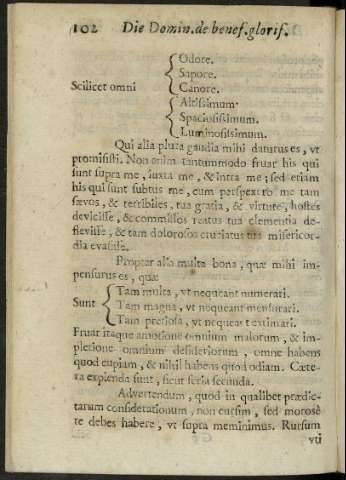 102 Die Domin. de benef. glorif.
Odore.
Sapore.
Scilicet omni
Canore.
Altissimum.
Spaciosissimum.
Luminosissimum.
Qui alia plura gaudia mihi daturus es, vt
promisisti. Non enim tantummodo fruar his qui
sunt supra me, iuxta me, & intra me; sed etiam
his qui sunt subtus me, cum perspexero me tam
sævos, & terribiles, tua gratia, & virtute, hostes
devicisse, & commissos reatus tua clementia de-
flevisse, & tam dolorosos cruciatus tua misericor-
dia evasisse.
Propter alia multa bona, quæ mihi im-
pensurus es, quæ
Tam multa, vt nequeant numerari.
Sunt Tam magna, vt nequeant mensurari.
Tam pretiosa, vt nequeant extimari.
Fruar itaque amotione omnium malorum, & im-
pletione omnium desideriorum, omne habens
quod cupiam, & nihil habens quod odiam. Cæte-
ra expienda sunt, sicut feria secunda.
Advertendum, quod in qualibet prædic-
tarum considerationum, non cursim, sed morosè
te debes habere, vt supra meminimus. Rursum